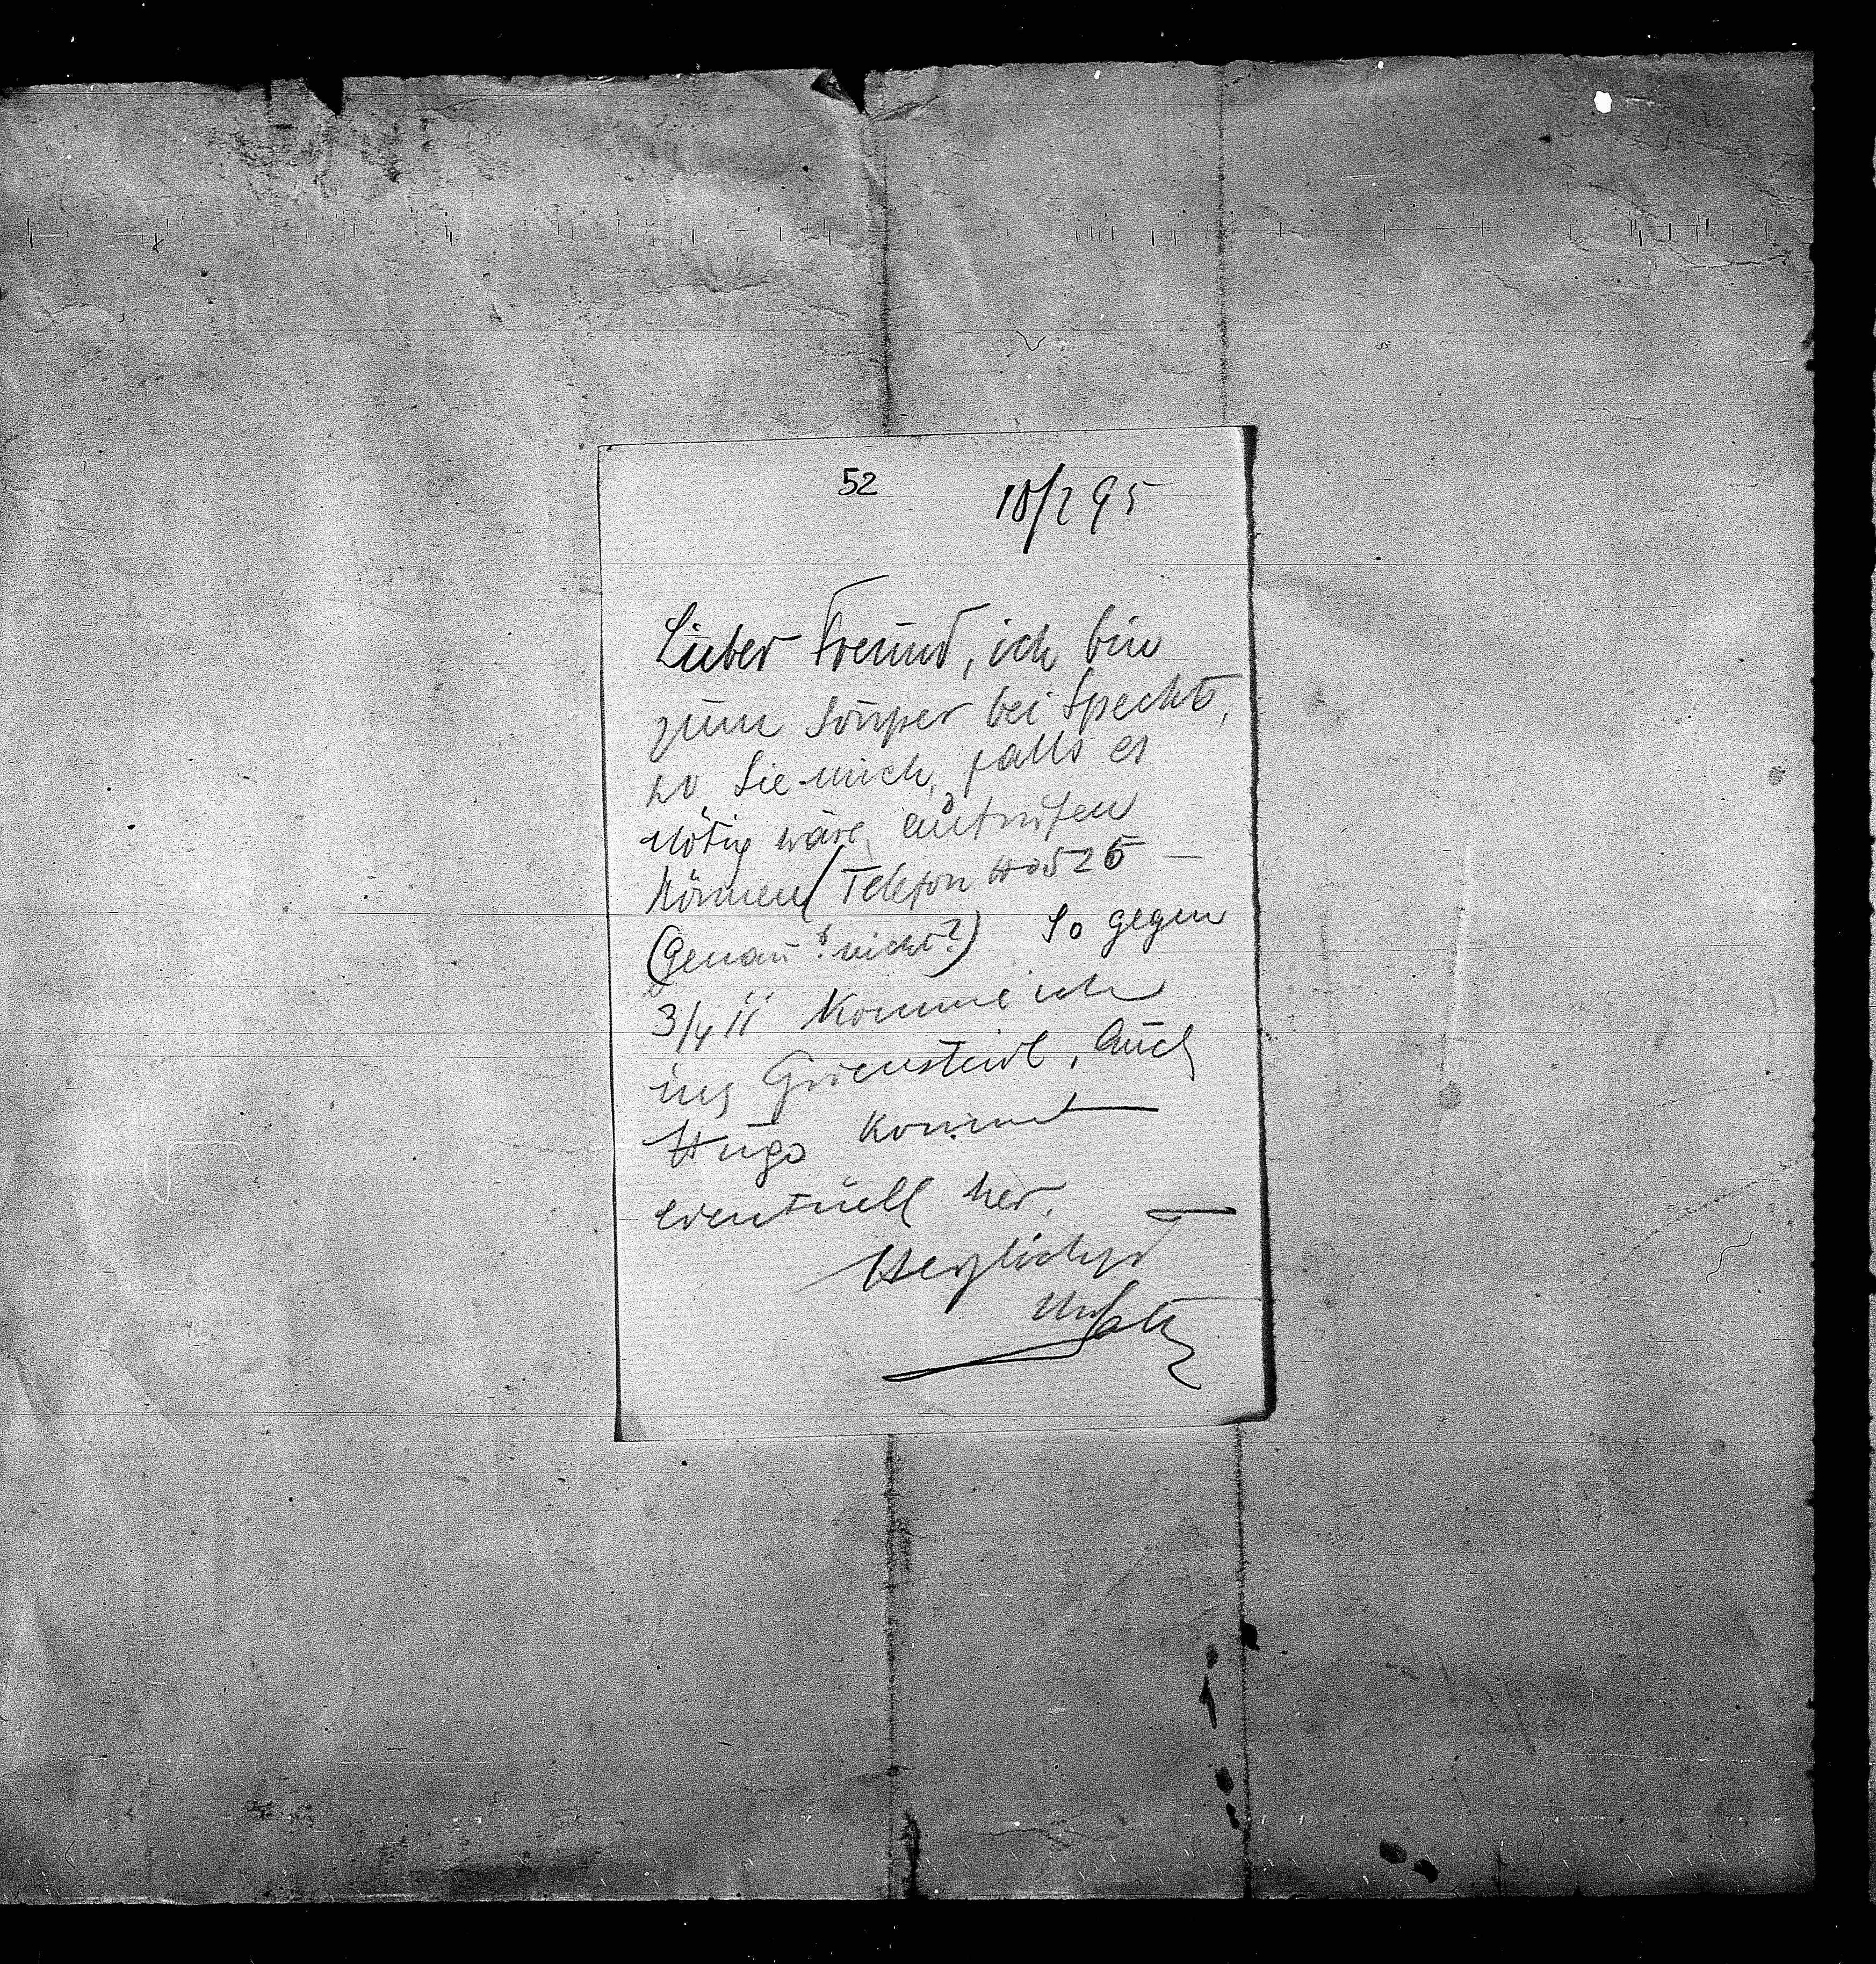 52
18/2 95
Lieber Freund, ich bin
zum Souper bei Specht,
wo Sie mich, falls es
nötig wäre, antrufen
können (Telefon No 526 —
(Genau? nicht?) So gegen
3/4 11 komme ich
ins Griensteidl, auch
Hugo kommt
eventuell her.
Herzlichst
Ihr Salten